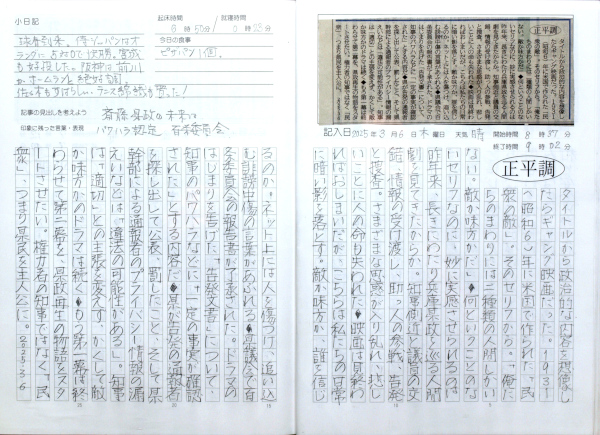 小日記
球春到来。侍ジャパンはオ
ランダに5対0で快勝。宮城
も好投した。阪神は前川
がホームランと絶好調。
佐々木もすばらしい。テニス錦織も
起床時間
6時50分
就寝時間
0時23分
今日の食事
ピザパン1個。
記事の見出しを考えよう
斎藤県政の未来は
印象に残った言葉・表現
パワハラ認定 百条委員会
正平調
記入日2025年3月6日木曜日 天気 晴
開始時間 8時37分
終了時間 9時02分
正平調
タイトルから政治的な内容を想像し
たらギャング映画だった。1931
(昭和6)年に米国で作られた、「民
衆の敵」。そのセリフから。「俺た
ちのまわりには二種類の人間しかい
ない。敵か味方かだ」◆何ということのな
いセリフなのに、妙に実感させられるのは
昨年来、長きにわたり兵庫県政を巡る人間
劇を見てきたからか。知事側近と議員の交
錯、情報の受け渡し、助っ人の参戦、告発
と捜査。さまざまな思惑が入り乱れ、悲し
いことに人の命が失われた◆映画は見終わ
ればおしまいだが、こちらは私たちの日常
に暗い影を落とす。敵か味方か、誰を信じ
るのか。ネット上には人を傷つけ、追い込
む誹謗中傷の言葉があふれる◆県議会で百
条委員会の報告書が了承された。ドラマの
はじまりを告げた「告発文書」について、
知事のパワハラなどに、「一定の事実が確認
された」とする内容だ◆県が告発の通報者
を探し出して公表、罰したこと、そして県
幹部による通報者のプライバシー情報の漏
えいなどは「違法の可能性がある」。知事
は「適切」との主張を変えず、かくして敵
か味方かのドラマは続く◆もう第一幕は終
わらせて第二幕を。県政再生の物語をスタ
ートさせたい。権力者の知事ではなく、「民
衆」、つまり県民を主人公に。2025・3・6